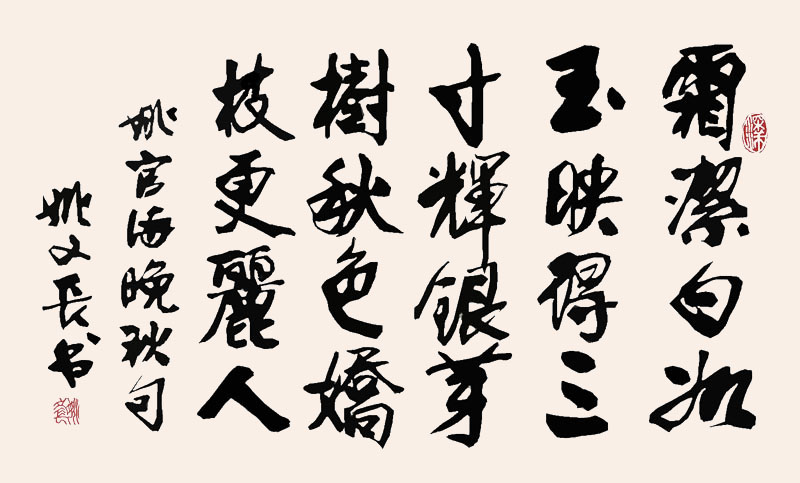 霜潔白
玉映得三
寸輝銀芽
樹秋色嬌
枝更麗人
姚官海晚秋句
姚文長书